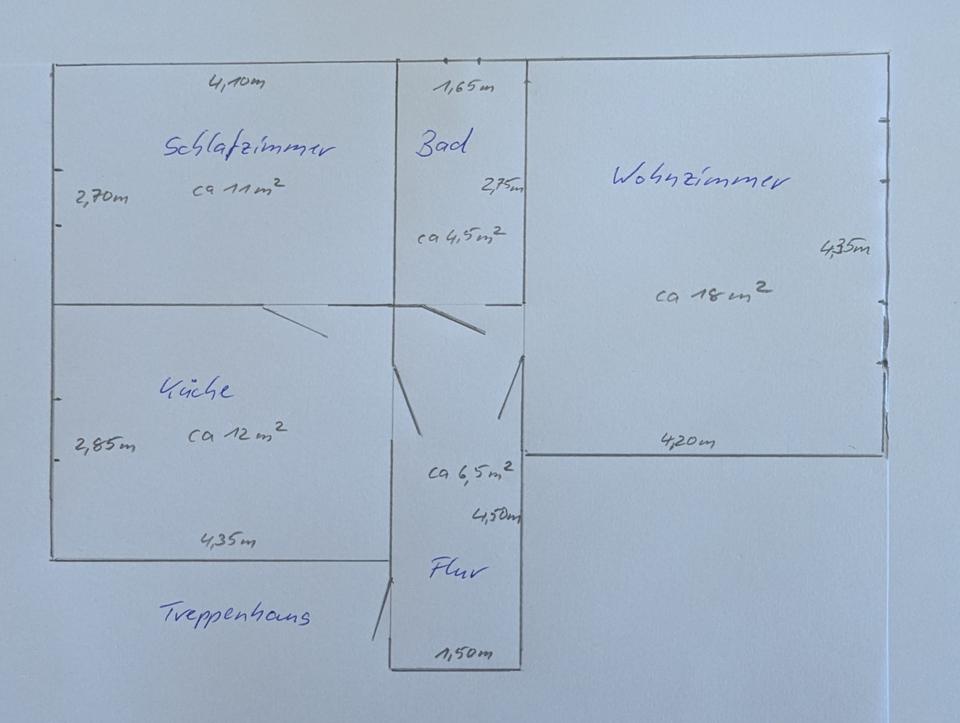 4,10m
Schlafzimmer
ca 11m²
2,70m
1,65m
Bad
2,75m
ca 4,5m²
Wohnzimmer
4,35m
ca 18m²
4,20m
Küche
ca 12m²
2,85m
4,35m
ca 6,5m²
4,50m
Flur
1,50m
Treppenhaus